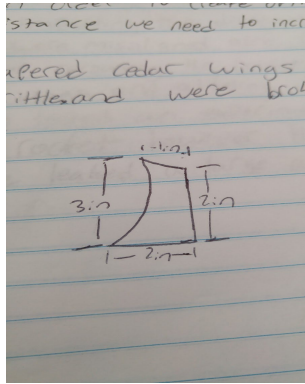 istance we need to incr
apered cedar wings
rittle and were brok
1in
3in 2in
2in